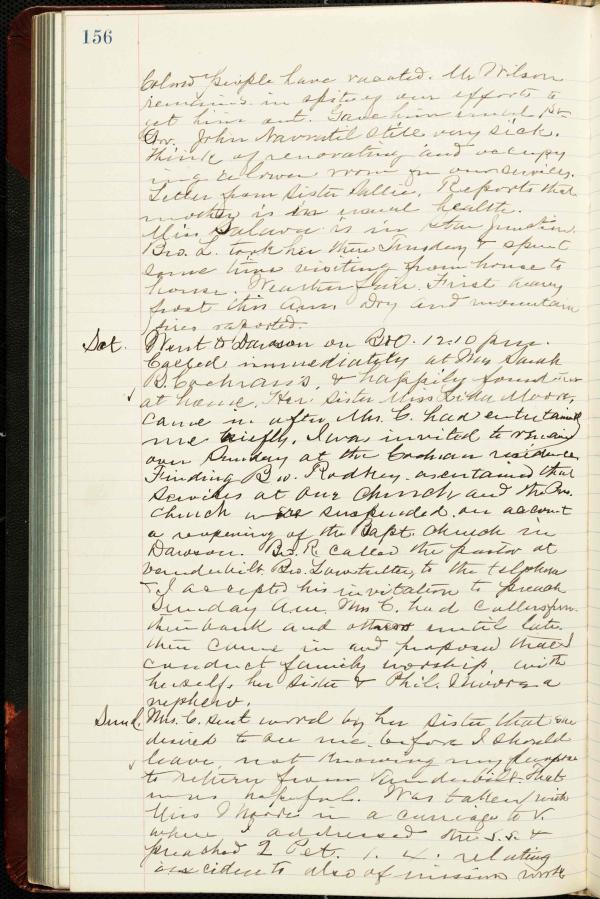 156
Colored people have vacated. Mr Wilson
remains in spite of our efforts to
get him out. Gave him until 1st
John Navratil still very sick.
Think of renovating and occupy
ing lower room for our services.
Letter from Sister Sallie. Reports that
mother is in usual health.
Miss is in Star Junction.
Bro. L. took her there Tuesday & spent
some time visiting from house to
house. Weather fair. First heavy
frost this a.m. Dry and mountain
fires reported.
Sat. Went to Dawson on B&O. 12.10 p.m.
Called immediately at Mrs Sarah
B. Cochran's, & happily found her
at home. Her sister Miss Lida Moore,
came in after Mrs. C. had entertained
me briefly. I was invited to remain
over Sunday at the Cochran residence
Finding Bro. Rodkey ascertained that
services at our church and the
church were suspended on account
a reopening of the Bapt. Church in
Dawson. Bro. R. called the pastor at
Vanderbilt, Bro. to the telephone
& I accepted his invitation to preach
Sunday a.m. Mrs C. had callers from
their bank and others until late.
then came in and proposed that I
conduct family worship, with
herself, her sister & Phil. Moore a
nephew.
Sund. Mrs. C. sent word by her sister that she
desired to see me before I should
leave, not knowing my purpose
to return from Vanderbilt. That
was hopeful. Was taken with
Miss Moore in a carriage to V.
where I addressed the S.S. &
preached 2 Pet. 1. 4. relating
incidents also of mission work